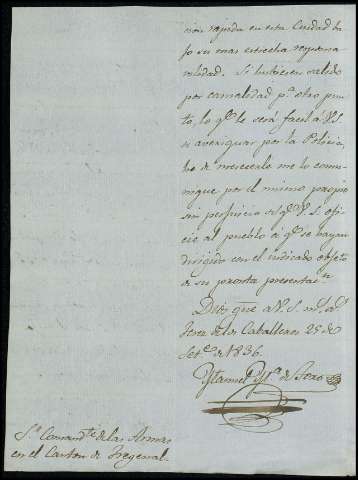 cion rapida en esta Ciudad ba
jo su mas estrecha responsa
vilidad. Si hubiesen salido
por casualidad pª otro pun
to, lo qe le será facil á V.S.
averiguar por la Policia,
he de merecerle me lo comu
nique por el mismo propio
sin perjuicio de qe V.S. ofi
cie al pueblo a qe se hayan
dirigido con el indicado objeto
de su pronta presentaon
Dios gue a V.S. ms as
Jerez de los Caballeros 25 de
Sete de 1836.
Manuel de
Sr Comandte de las Armas
en el Canton de Fregenal.